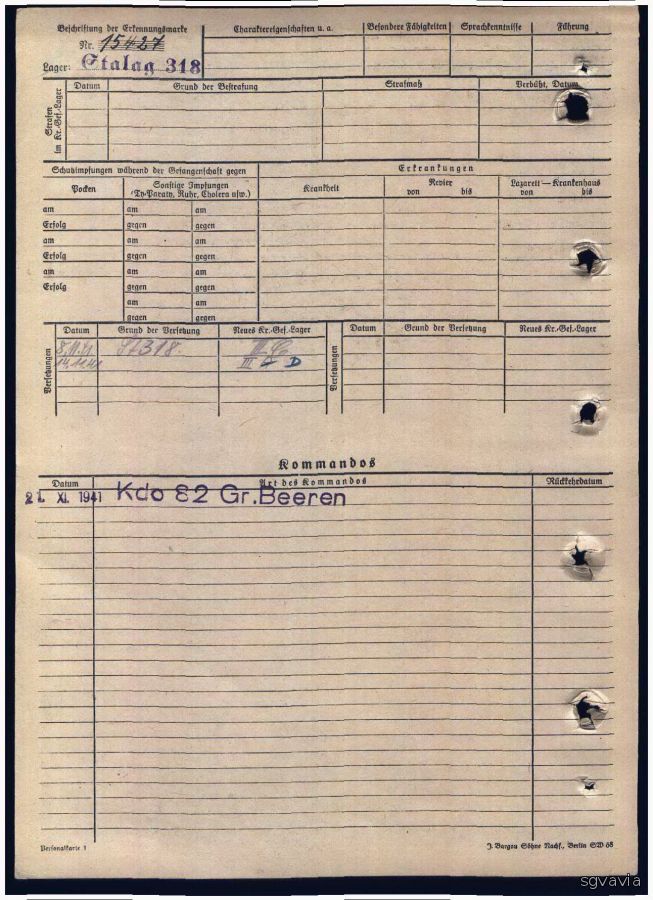 Beschriftung der Erkennungsmarke
Nr. 15427
Lager: Stalag 318
Charaktereigenschaften u. a.
Besondere Fähigkeiten
Sprachkenntnisse
Führung
Strafen im Kr.-Gef.-Lager
Datum
Grund der Bestrafung
Strafmaß
Verbüßt, Datum
Schutzimpfungen während der Gefangenschaft gegen
Erkrankungen
Pocken
Sonstige Impfungen
(Ty-Paraty, Ruhr, Cholera usw.)
Krankheit
Revier
von bis
Lazarett — Krankenhaus
von bis
am am am
Erfolg gegen gegen
am am am
Erfolg gegen gegen
am am am
Erfolg gegen gegen
am am
gegen gegen
Versetzungen
Datum
Grund der Versetzung
Neues Kr.-Gef.-Lager
8.11.41 St 318. III C
14.11.41 III D
Versetzungen
Datum
Grund der Versetzung
Neues Kr.-Gef.-Lager
Kommandos
Datum
Art des Kommandos
Rückkehrdatum
21. XI. 1941 Kdo 82 Gr.Beeren
Personalkarte 1
J. Bargou Söhne Nachf., Berlin SW 68
sgvavia